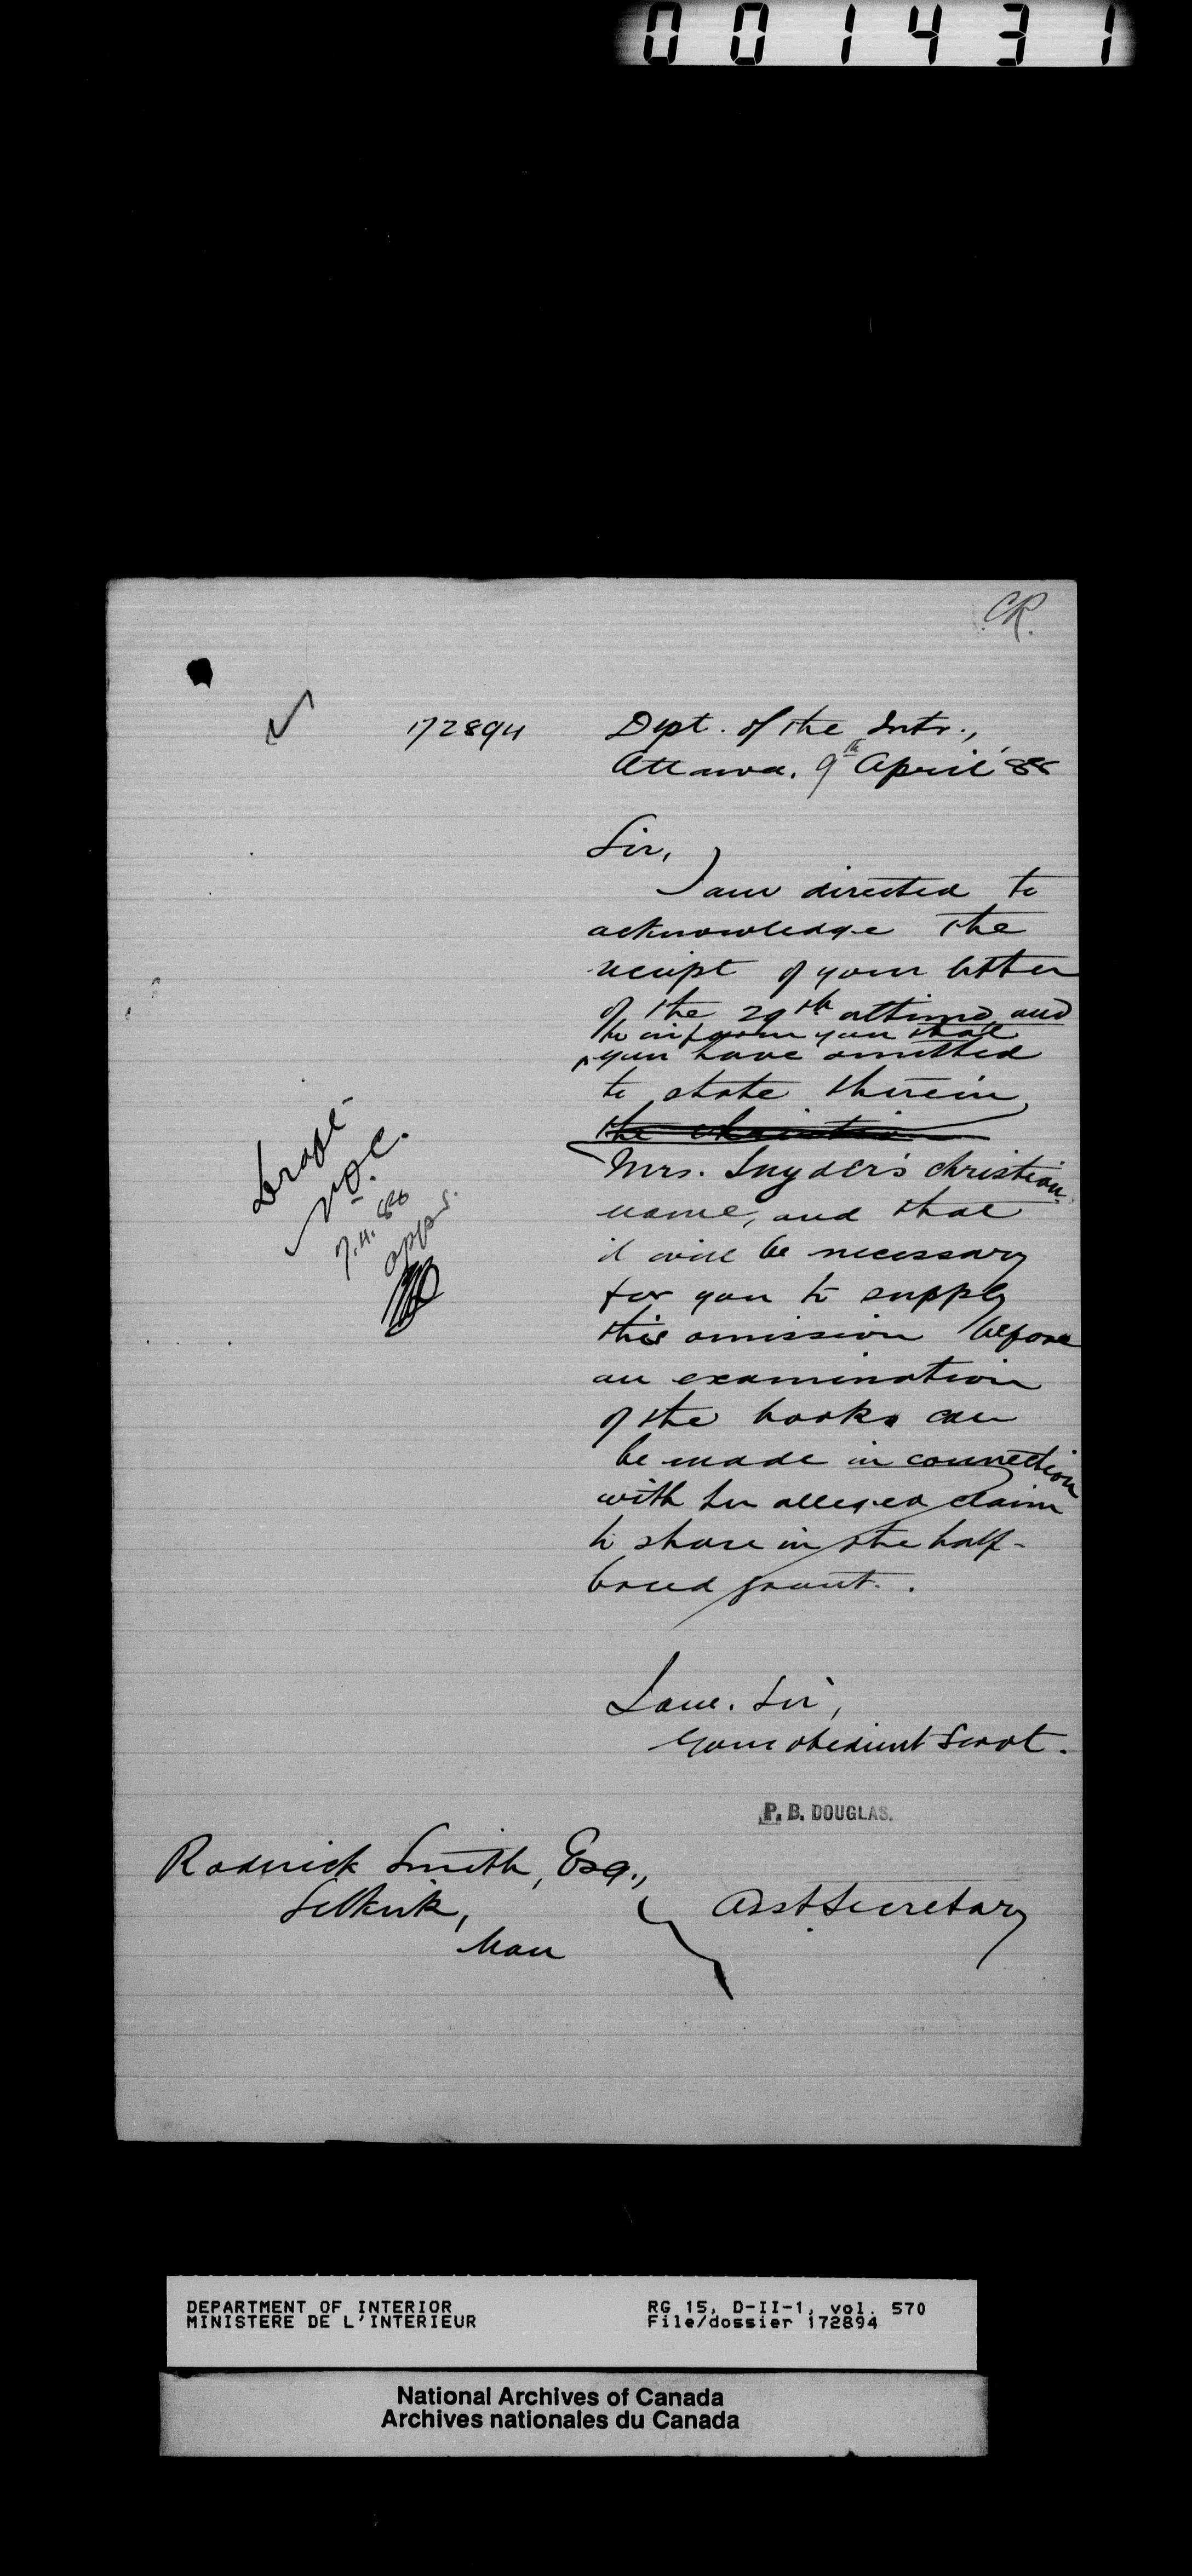 001431
CR.
172894
Dept. of the Intr.,
Ottawa. 9th April '88
Sir,
I am directed to
acknowledge the
receipt of your letter
of the 29th ultimo, and
to inform you that
you have omitted
to state therein
the Christian
Mrs. Snyder's Christian
name, and that
it will be necessary
for you to supply
this omission before
an examination
of the books can
be made in connection
with her alleged claim
to share in the half-
breed grant.
Draft
7.4.88
appd.
I am. Sir,
Your obedient Servt.
P. B. DOUGLAS.
Asst Secretary
Roderick Smith, Esq.,
Selkirk,
Man
DEPARTMENT OF INTERIOR
MINISTERE DE L'INTERIEUR
RG 15, D-II-1, vol. 570
File/dossier 172894
National Archives of Canada
Archives nationales du Canada